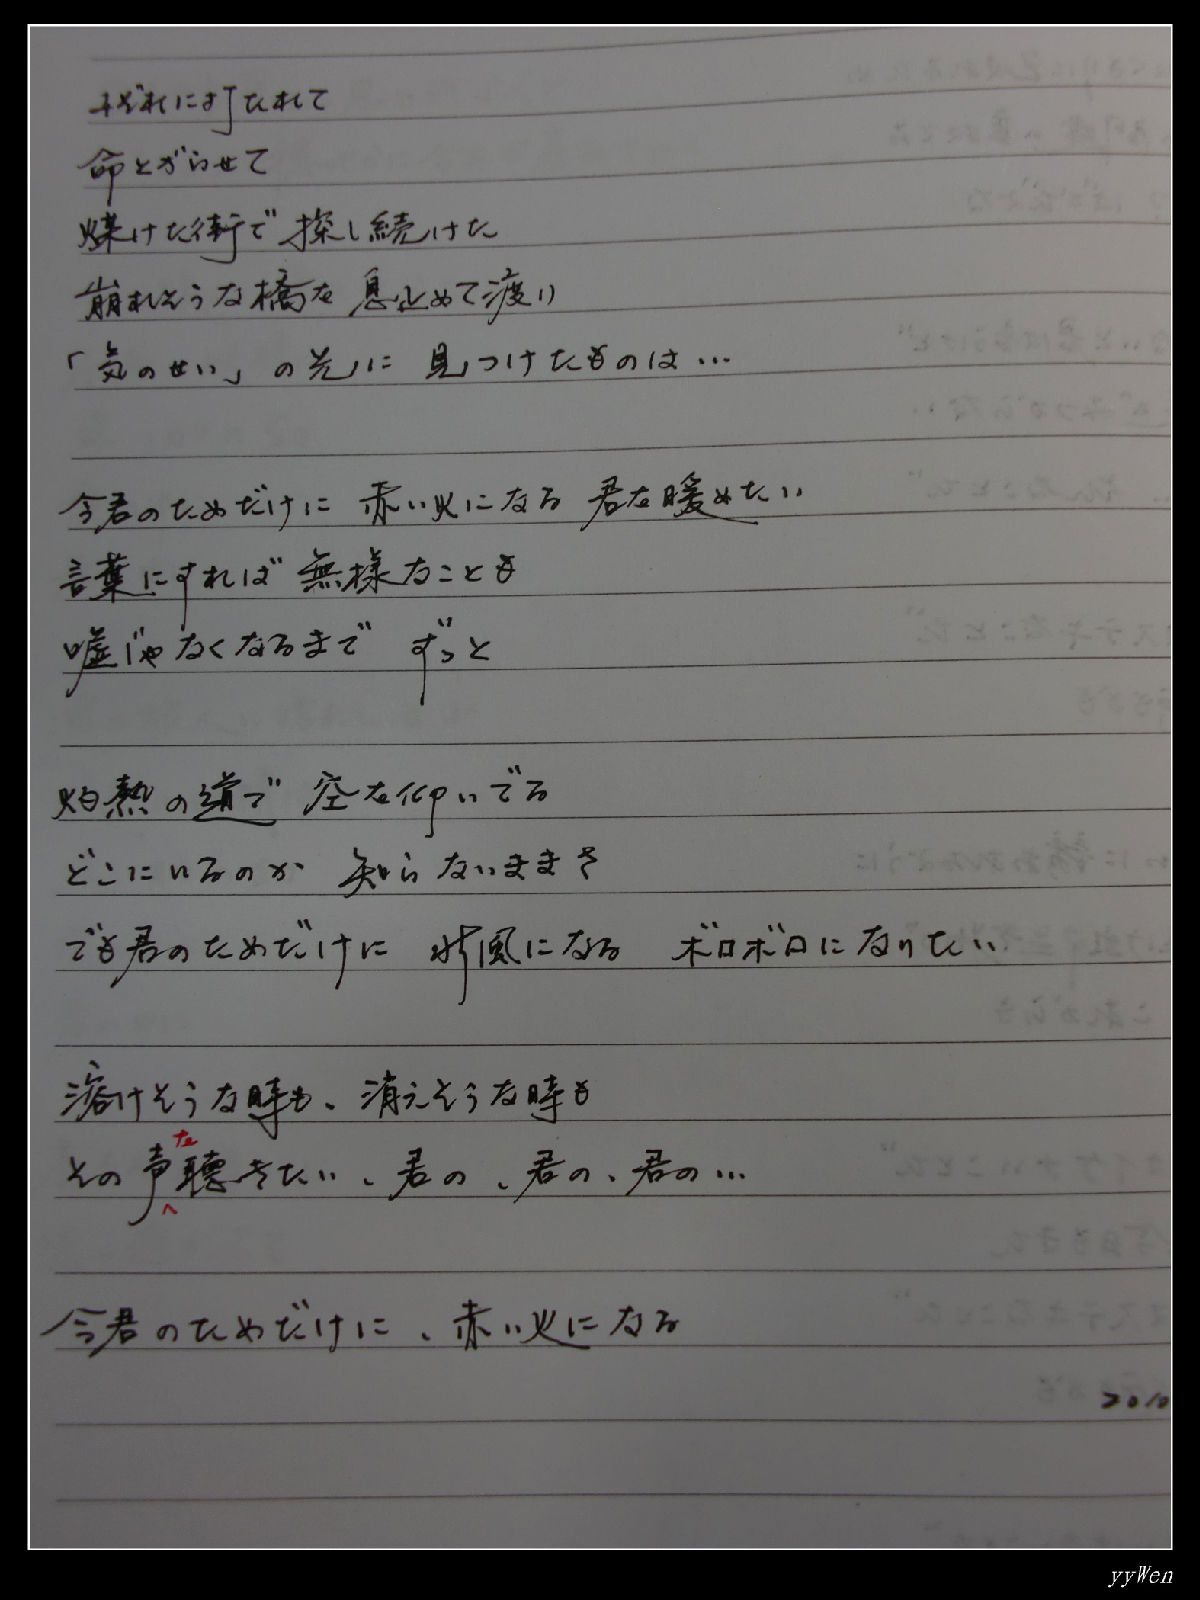 みぞれに打たれて
命とがらせて
煤けた街で 探し続けた
崩れそうな橋を 息止めて渡り
「気のせい」の先に 見つけたものは…
今君のためだけに 赤い火になる 君を暖めたい
言葉にすれば 無様なことも
嘘じゃなくなるまで ずっと
灼熱の道で 空を仰いでる
どこにいるのか 知らないままさ
でも君のためだけに 氷風になる ボロボロになりたい
溶けそうな時も、消えそうな時も
その声を聴きたい、君の、君の、君の…
今君のためだけに、赤い火になる
2010
yyWen